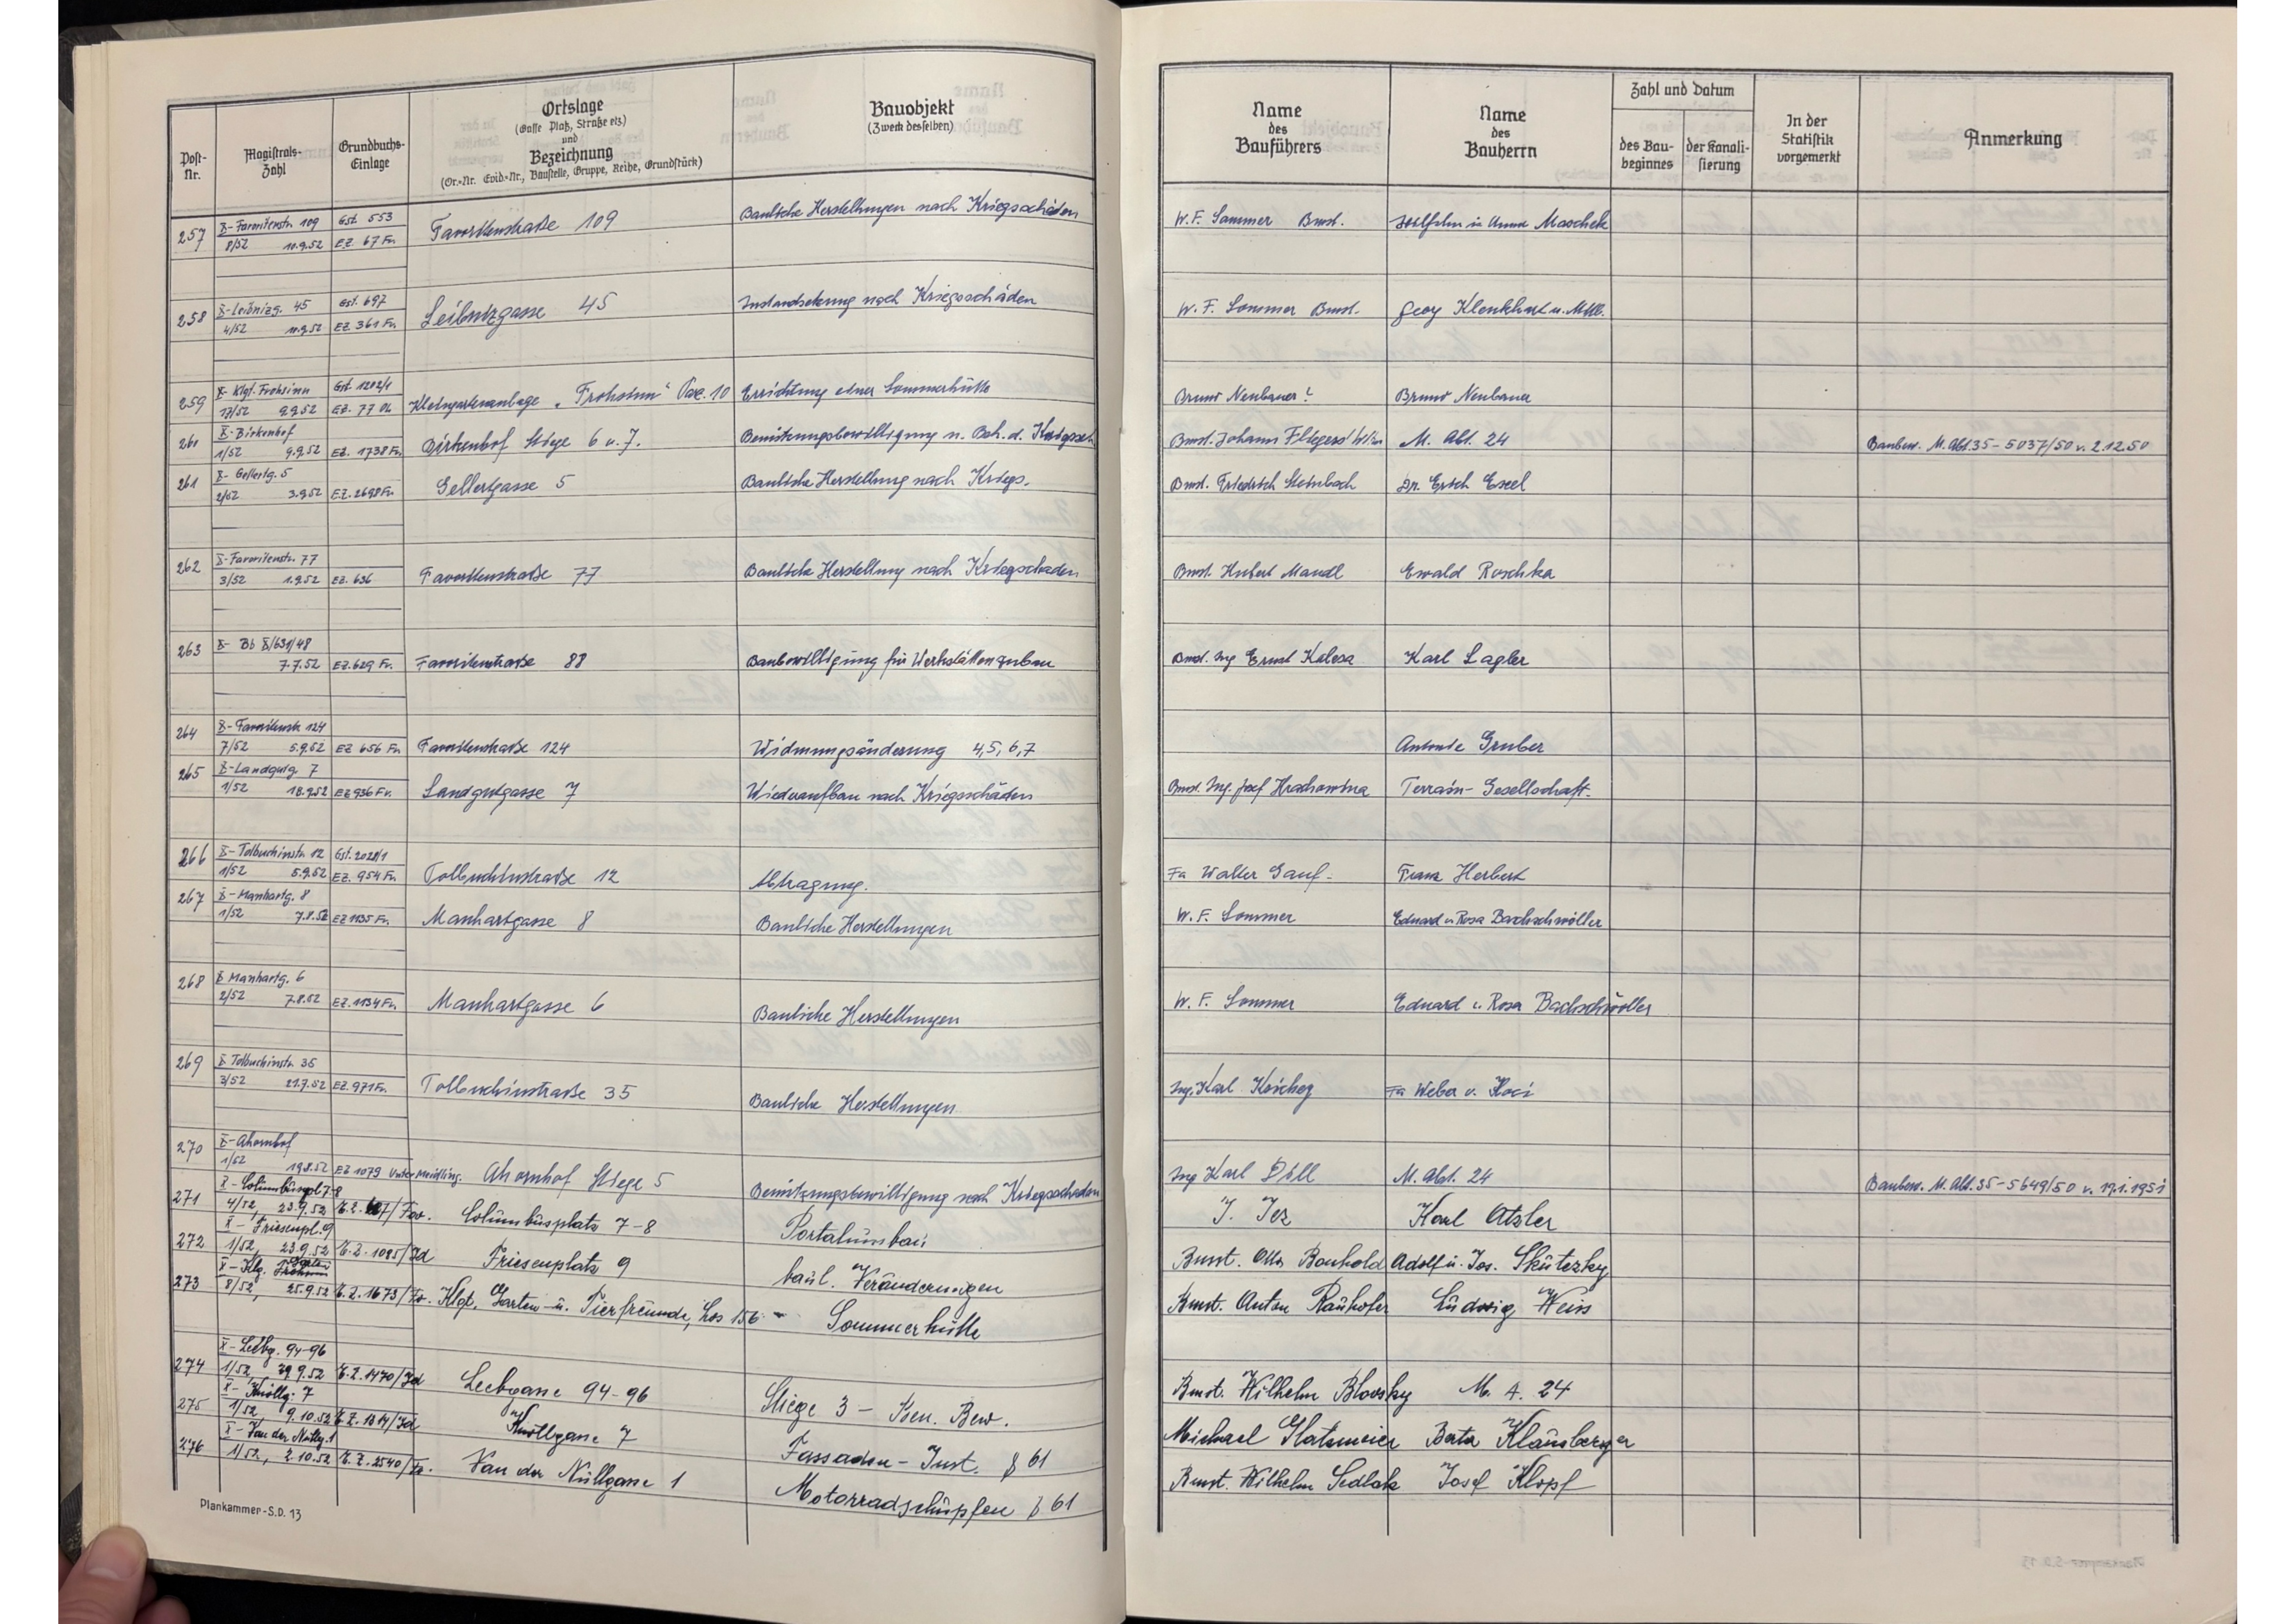 Post-Nr.
Magistrats-Zahl
Grundbuchs-Einlage
Ortslage
(Gasse Platz, Straße etz)
und
Bezeichnung
(Or.-Nr. Evid.-Nr., Baustelle, Gruppe, Reihe, Grundstück)
Bauobjekt
(Zweck desselben)
Name
des
Bauführers
Name
des
Bauherrn
Zahl und Datum
des Bau-beginnes
der Kanali-sierung
In der
Statistik
vorgemerkt
Anmerkung
X-Favoritenstr. 109 Gst. 553
257 8/52 11.9.52 EZ. 67 Fv. Favoritenstraße 109 Bauliche Herstellungen nach Kriegsschäden W.F. Sommer Bmst. u. Anna Maschek
X-Leibnizg. 45 Gst. 697
258 4/52 11.9.52 EZ 361 Fv. Leibnizgasse 45 Instandsetzung nach Kriegsschäden W. F. Sommer Bmst. Georg Klenkhart u. Mtbs.
X-Klgt. Frohsinn Gst. 1202/1
259 17/52 9.9.52 EZ. 77 OL Kleingartenanlage „Frohsinn“ Parz. 10 Errichtung einer Sommerhütte Bruno Neubauer Bruno Neubauer
X-Birkenhof
260 1/52 9.9.52 EZ. 1738 Fv. Birkenhof Stiege 6 u. 7. Benützungsbewilligung n. Beh. d. Kriegssch. Bmst. Johann M. Abt. 24 Baubew. M. Abt. 35-5037/50 v. 2.12.50
X-Gellertg. 5
261 2/52 3.9.52 EZ. 2698 Fv. Gellertgasse 5 Bauliche Herstellung nach Kriegs. Bmst. Friedrich Steinbach Dr. Erich Exel
X-Favoritenstr. 77
262 3/52 1.9.52 EZ. 636 Favoritenstraße 77 Bauliche Herstellung nach Kriegschaden Bmst. Hubert Mandl Ewald Roschka
X- Bb X/631/48
263 7.7.52 EZ. 629 Fv. Favoritenstraße 88 Baubewilligung für Werkstättenzubau Bmst. Ing Ernst Kalesa Karl Lagler
X-Favoritenstr 124
264 7/52 5.9.52 EZ 656 Fv. Favoritenstraße 124 Widmungsänderung 4,5,6,7 Antonie Gruber
X-Landgutg. 7
265 1/52 18.9.52 EZ 936 Fv. Landgutgasse 7 Wiederaufbau nach Kriegsschäden Bmst. Ing. Josef Hrachowina Terrain-Gesellschaft
X-Tolbuchinstr. 12 Gst. 2028/1
266 1/52 5.9.52 EZ. 954 Fv. Tolbuchinstraße 12 Abtragung. Fa Walter Franz Herbert
X-Manhartg. 8
267 1/52 7.8.52 EZ 1135 Fv. Manhartgasse 8 Bauliche Herstellungen W. F. Sommer Eduard u. Rosa Bachschwöller
X Manhartg. 6
268 2/52 7.8.52 EZ. 1134 Fv. Manhartgasse 6 Bauliche Herstellungen W. F. Sommer Eduard u. Rosa Bachschwöller
X Tolbuchinstr. 35
269 3/52 21.7.52 EZ. 971 Fv. Tolbuchinstraße 35 Bauliche Herstellungen Ing. Karl Fa Weber u. Koci
X-Ahornhof
270 1/52 19.8.52 EZ 1079 Unter Meidling. Ahornhof Stiege 5 Benützungsbewilligung nach Kriegsschaden Ing Karl Dill M. Abt. 24 Baubew. M. Abt. 35-5649/50 v. 19.1.1951
X-Columbuspl. 7-8
271 4/52, 23.9.52 Columbusplatz 7-8 Portalumbau J. Jez Karl Atzler
X-Friesenpl. 9
272 1/52, 23.9.52 E.Z. 1085/Id Friesenplatz 9 baul. Veränderungen Bmst. Otto Bauhold Adolf u. Jos. Skutezky
X-Klg.
273 8/52, 25.9.52 E.Z. 1673/Fv. Klgt. Garten- u. Tierfreunde, Los 156 Sommerhütte Bmst. Anton Rauhofer Ludwig Weiss
X-Leebg. 94-96
274 1/52, 29.9.52 E.Z. 1470/Id Leebgasse 94-96 Stiege 3 - Ben. Bew. Bmst. Wilhelm Blovsky M. A. 24
X-Knöllg. 7
275 1/52, 9.10.52 E.Z. 1314/Id Knöllgasse 7 Fassaden-Inst. § 61 Michael Glatzmeier Beata Klausberger
X-Van der Nüllg. 1
276 1/52, 2.10.52 E.Z. 2540/Fv. Van der Nüllgasse 1 Motorradschupfen § 61 Bmst. Wilhelm Sedlak Josef Klopf
Plankammer-S.D. 13